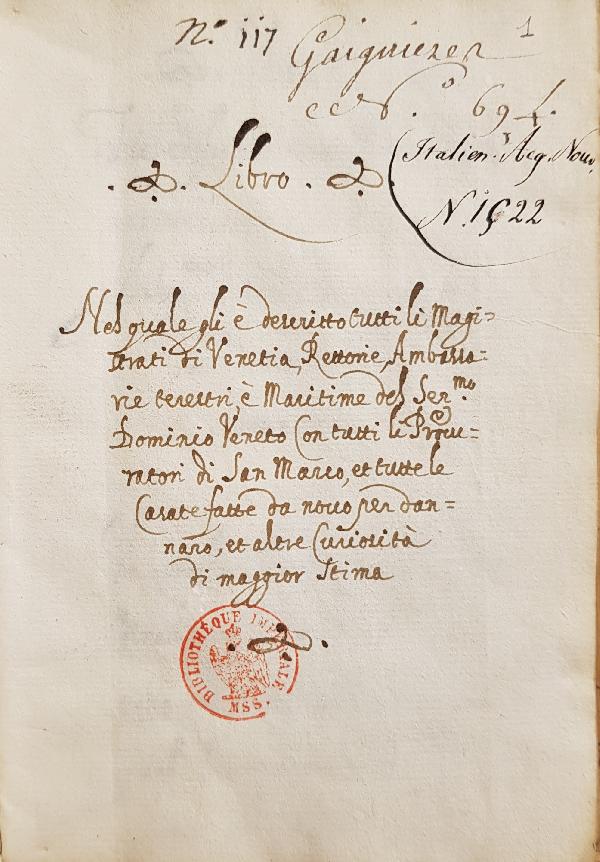 N.º 117
1
Gaignieres
N.º 694.
Italien. Acq. Nouv.
N.º 1922
Libro
Nel quale gli è descritto tutti li Magi=
strati di Venetia, Rettorie, Ambassa=
rie terestri, è Maritime del Ser.mo
Dominio Veneto Con tutti li Procu=
ratori di San Marco, et tutte le
Casate fatte da novo per dan=
naro, et altre Curiosità
di maggior Stima
BIBLIOTHÈQUE IMPÉRIALE
MSS.